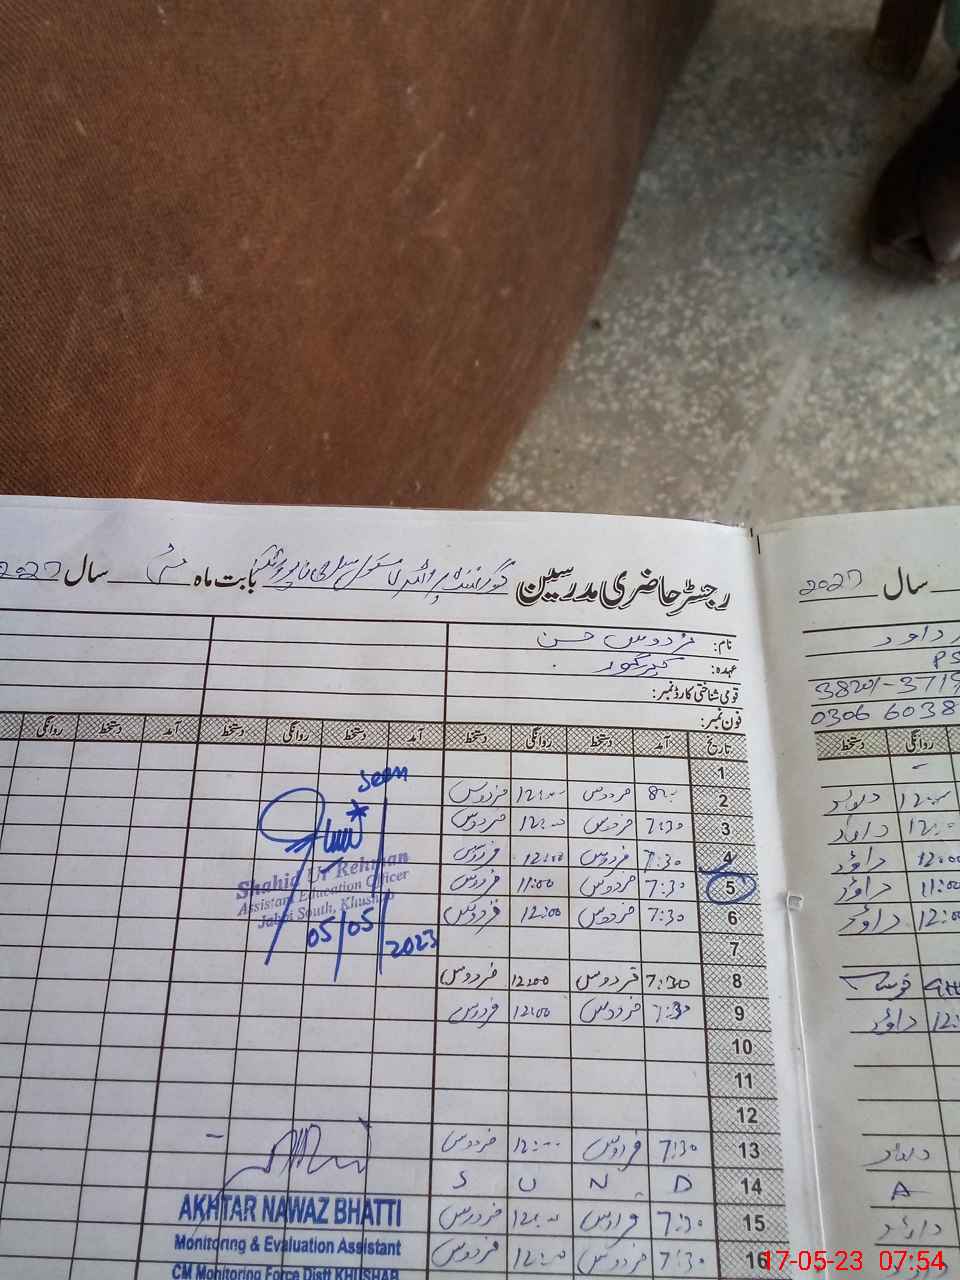 رجسٹر حاضری مدرسین گورنمنٹ پرائمری سکول بابت ماہ مئی سال 2023
نام: فردوس حسن
عہدہ: کیئرگور
قومی شناختی کارڈ نمبر:
فون نمبر:
تاریخ آمد دستخط روانگی دستخط آمد دستخط روانگی دستخط آمد دستخط روانگی
1
2 8:00 فردوس 12:00 فردوس
3 7:30 فردوس 12:00 فردوس
4 7:30 فردوس 12:00 فردوس
5 7:30 فردوس 11:00 فردوس
6 7:30 فردوس 12:00 فردوس
7
8 7:30 فردوس 12:00 فردوس
9 7:30 فردوس 12:00 فردوس
10
11
12
13 7:30 فردوس 12:00 فردوس
14 S U N D
15 7:30 فردوس 12:00 فردوس
16 7:30 فردوس 12:00 فردوس
Seen
Shahid Ur Rehman
Assistant Education Officer
Jabbi South, Khushab
05/05/2023
AKHTAR NAWAZ BHATTI
Monitoring & Evaluation Assistant
CM Monitoring Force Distt KHUSHAB
سال 2023
داود
PS
38201-3719
0306 6038
روانگی دستخط
12:00 داؤد
12:0 داؤد
12:00 داؤد
11:00 داؤد
12:00 داؤد
12: داؤد
داؤد
A
داؤد
17-05-23 07:54